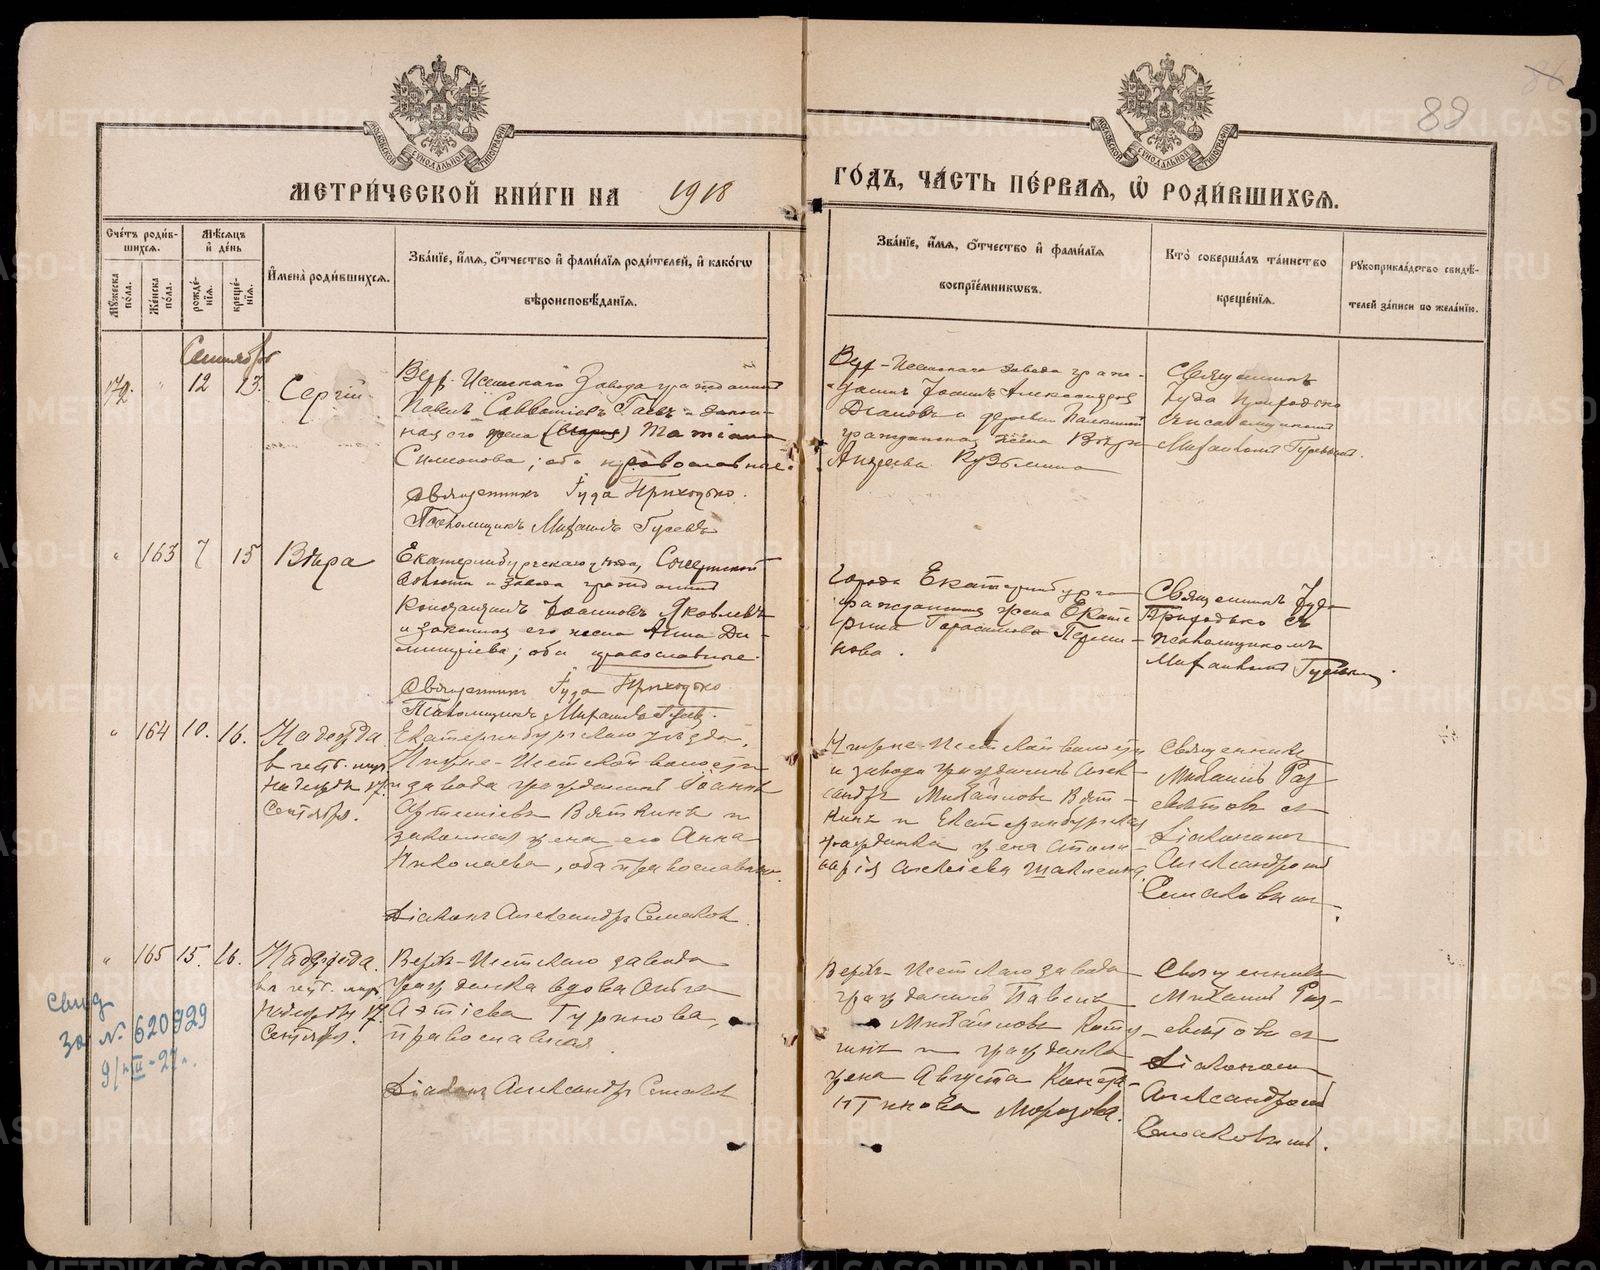 88
МЕТРИ́ЧЕСКОЙ КНИ́ГИ НА 1918
ГО́ДЪ, ЧА́СТЬ ПЕ́РВАЯ, Ѡ РОДИ́ВШИХСЯ.
Сче́тъ роди́вшихся.
Му́жеска по́ла.
Же́нска по́ла.
Мѣ́сяцъ и де́нь
рожде́нїя.
креще́нїя.
Имена̀ роди́вшихся.
Зва́нїе, и́мя, о́тчество и фами́лїя роди́телей, и како́гѡ
вѣроисповѣ́данїя.
Зва́нїе, и́мя, о́тчество и фами́лїя
воспрїе́мникѡвъ.
Кто̀ соверша́лъ та́инство
креще́нїя.
Рꙋкоприкла́дство свидѣ́-
телей за́писи по жела́нїю.
Сентябрь
172. " 12 13. Сергій
Верх-Исетскаго Завода гражданинъ
Павелъ Савватіевъ Гаевъ и закон-
ная его жена (Марія) Татіана
Симеонова; оба православные.
Священникъ Іуда Приходько.
Псаломщикъ Михаилъ Гусевъ
Верх-Исетскаго завода граж-
данинъ Іоаннъ Александров
гражданская жена Вѣра
Андреева Кузьмина
Священникъ
Іуда Приходько
съ псаломщикомъ
Михаиломъ Гусевымъ.
" 163 7 15 Вѣра
Екатеринбургскаго уѣзда, Сысертской
волости и завода гражданинъ
Константинъ Іоанновъ Яковлевъ
и законная его жена Анна Ди-
митріева; оба православные.
Священникъ Іуда Приходько
Псаломщикъ Михаилъ Гусевъ.
Города Екатеринбурга
гражданина жена Екате-
рина Герасимова Перми-
нова.
Священникъ Іуда
Приходько съ
псаломщикомъ
Михаиломъ Гусевымъ.
" 164 10. 16. Надежда
в чест. муч.
Надежды 17.
Сентября.
Екатеринбургскаго уѣзда,
Нижне-Исетской волости
и завода гражданинъ Іоаннъ
Артеміевъ Вяткинъ и
законная жена его Анна
Николаева, оба православные.
Діаконъ Александръ Семаковъ.
Нижне-Исетской волости
и завода гражданинъ Алек-
сандръ Михайловъ Вят-
кинъ и Екатеринбургская
гражданка жена
Алексіева
Священникъ
Михаилъ Раз-
свѣтовъ съ
Діакономъ
Александромъ
Семаковымъ.
" 165 15. 16. Надежда.
в чест. муч.
Надежды 17.
Сентября.
Верхъ-Исетскаго завода
гражданка вдова Ольга
Гуринова,
православная.
Діаконъ Александръ Семаковъ
Верхъ-Исетскаго завода
гражданинъ Павелъ
Михайловъ
и гражданка
жена Августа Констан-
тинова Морозова.
Священникъ
Михаилъ Раз-
свѣтовъ съ
Діакономъ
Александромъ
Семаковымъ.
Свид
за № 620929
9/XII-27 г.
METRIKI.GASO-URAL.RU